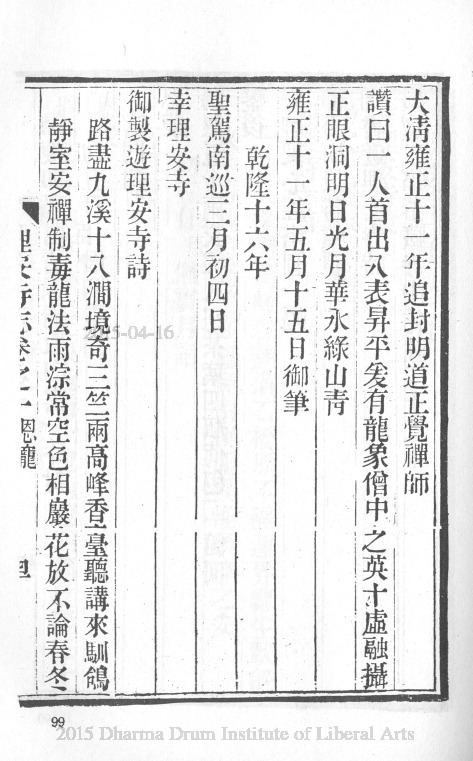 大清雍正十一年追封明道正覺禪師
讚曰一人首出八表昇平爰有龍象僧中之英十虛融攝
正眼洞明日光月華水綠山靑
雍正十一年五月十五日御筆
乾隆十六年
聖駕南巡三月初四日
幸理安寺
御製遊理安寺詩
路盡九溪十八澗境奇三竺兩高峰香臺聽講來馴鴿
靜室安禪制毒龍法雨淙常空色相巖花放不論春冬
理安寺志卷之一 恩寵 四
99
2015-04-16
2015 Dharma Drum Institute of Liberal Arts